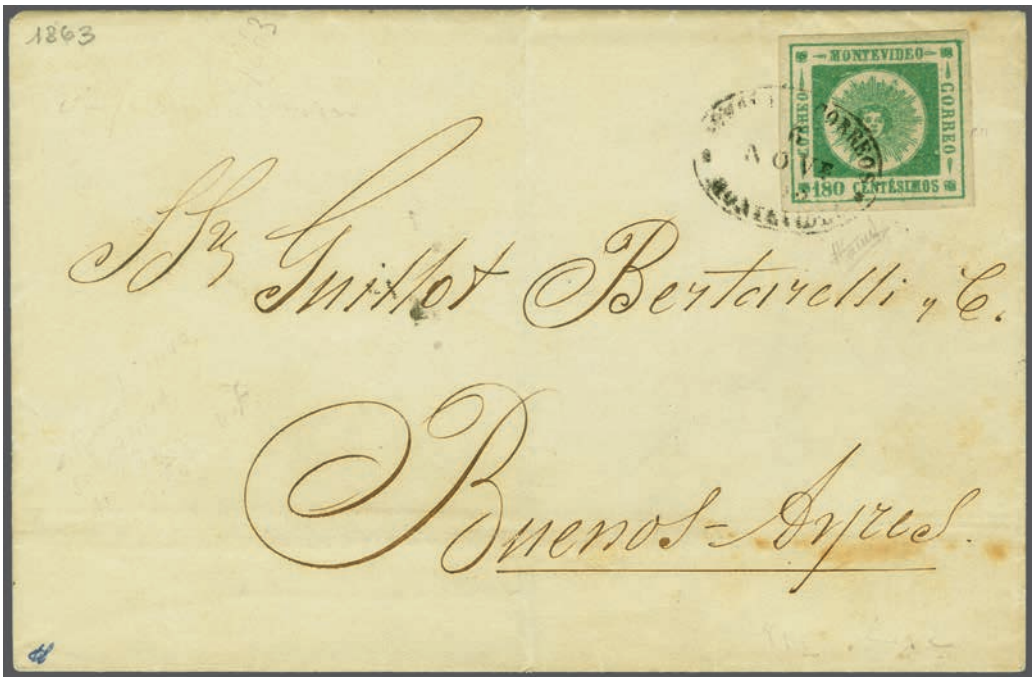 1863
MONTEVIDEO
CORREO
CORREO
180 CENTÉSIMOS
CORREOS
6
NOVE
MONTEVIDEO
SSres Guillot Bertarelli y C.
Buenos-Ayres.